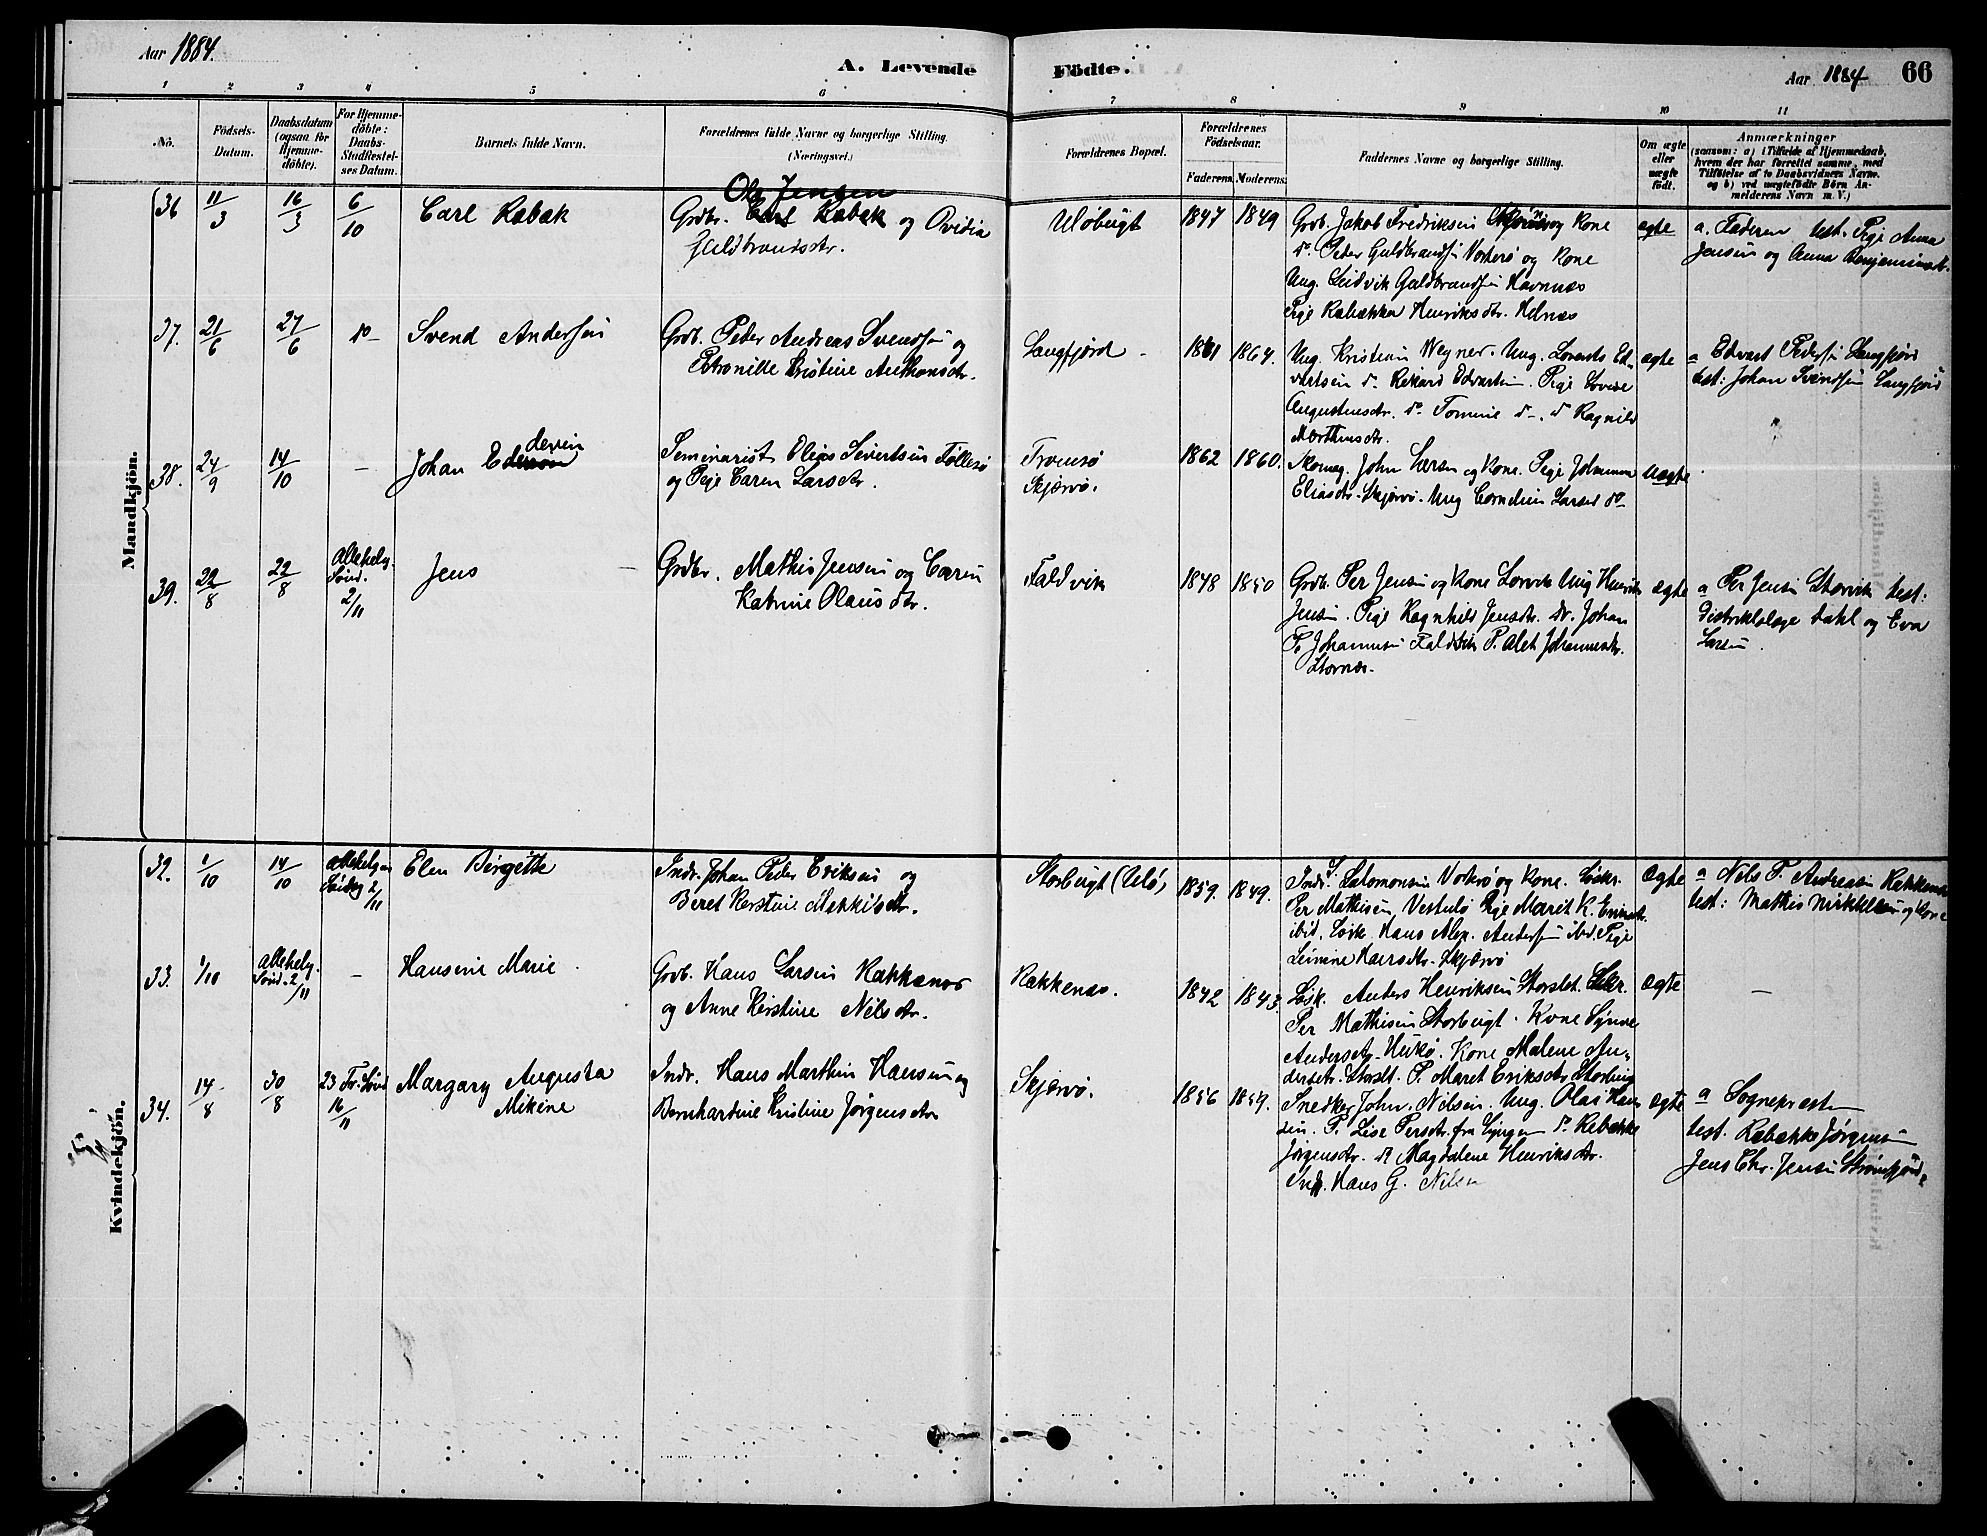 Aar 1884.
A. Levende Födte.
Aar 1884 66
1 2 3 4 5 6 7 8 9 10 11
No.
Födsels-
Datum.
Daabsdatum
(ogsaa for
Hjemme-
döbte).
For Hjemme-
döbte:
Daabs-
Stadfæstel-
ses Datum.
Barnets fulde Navn.
Forældrenes fulde Navne og borgerlige Stilling.
(Næringsvei.)
Forældrenes Bopæl.
Forældrenes
Födselsaar.
Faderens. Moderens.
Faddernes Navne og borgerlige Stilling.
Om ægte
eller
uægte
födt.
Anmærkninger
(saasom: a) i Tilfælde af Hjemmedaab,
hvem der har forrettet samme, med
Tilföielse af to Daabsvidners Navne.
og b) ved uægtefödte Börn An-
melderens Navn m. V.)
Mandkjön.
36 11/3 16/3 6/10 Carl Rabæk
Ole Jensen
Grdbr. Carl Rabæk og Ovidia
Guldbrandsdtr.
Uløbugt 1847 1849
Grdb. Jakob Fredriksen og Kone
do. Peder Guldbrandsen Vorterø og Kone
Ung. Ludvik Guldbrandsen Havnnæs
Pige Rebækka Henriksdtr. Helnæs
ægte
a. Faderen test. Pige Anna
Jensen og Anna Benjaminsdtr.
37. 21/6 27/6 do - Svend Andersen
Grdb. Peder Andreas Svendsen og
Petronille Kristine Anthonsdtr.
Langfjord - 1861 1864.
Ung. Kristian Wegner. Ung. Lorents Ed-
vartsen do. Rikard Edvartsen. Pige Lovise
Augustinusdtr. do. Tomine do-. do Ragnild
Morthensdtr.
ægte
a Edvart Pedersen Langfjord
test: Johan Svendsen Langfjord
38. 24/9 14/10 - Johan Edevein
Seminarist Elias Sivertsen Follesø
og Pige Caren Larsdtr.
Tromsø
Skjærvø.
1862 1860.
Skomag. John Larsen og Kone. Pige Johanna
Eliasdtr. Skjærvø. Ung Cornelius Larsen do-
uægte
39. 22/8 22/8 Allehelg.
Sönd.
2/11
Jens -
Grdbr. Mathis Jensen og Caren
Katrine Olausdtr.
Faldvik 1848 1850
Grdb. Per Jensen og Kone Lorvik Ung Henrik
Jensen. Pige Ragnhild Jensdtr. do. Johan
P. Johannesen Faldvik P. Alet Johannesdtr.
Stornæs.
ægte
a Per Jensen Storvik test:
Distriktslæge Dahl og Eva
Larsen.
Kvindekjön.
32. 1/10 14/10 Allehelgen
Söndag 2/11
Elen Birgitte
Indr. Johan Peder Eriksen og
Beret Kerstine Mikkelsdtr.
Storbugt (Ulø) 1859. 1849.
Indr. S. Salomonsen Vorterø og Kone. Löskr.
Per Mathisen Vestulø Pige Marit K. Eriksdtr.
ibid. Lösk. Hans Alex. Andersen ibd. Pige
Leinine Larsdtr. Skjærvø
Ægte
a Nils P. Andreasen Rakkenæs
test: Mathis Mikkelsen og Kone
33. 1/10 Allehelg.
Sönd. 2/11 - Hansine Marie.
Grdb. Hans Larsen Rakkenæs
og Anne Kerstine Nilsdtr.
Rakkenæs. 1842 1843.
Lösk. Anders Henriksen Storslet. Löskr.
Per Mathisen Storbugt. Kone Synve
Andersdtr. Hukø. Kone Malene An-
dersdtr. Storslt. P. Maret Eriksdtr Storbug
Ægte -
34. 14/8 30/8 23 Tr. Sönd
16/11
Margary Augusta
Mikine
Indr. Hans Marthin Hansen og
Bernhardine Kristine Jørgensdtr
Skjærvø. 1856 1857.
Snedker John. Nilsen. Ung. Olai Han-
sen. P. Lise Persdtr. fra Lyngen do Rebække
Jørgensdtr. do Magdalene Henriksdtr.
Indr. Hans G. Nilsen
Ægte
a Sognepræsten
test. Rabække Jørgensen
Jens Chr. Jensen Strømfjord.